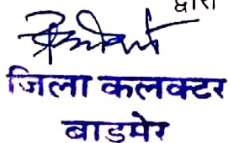 द्वारा
जिला कलक्टर
बाडमेर